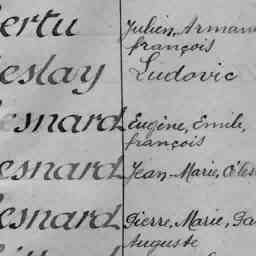 ertu Julien, Arman
françois
eslay Ludovic
esnard Eugène, Emile,
françois
esnard Jean-Marie, Céles
esnard Pierre, Marie,
Auguste